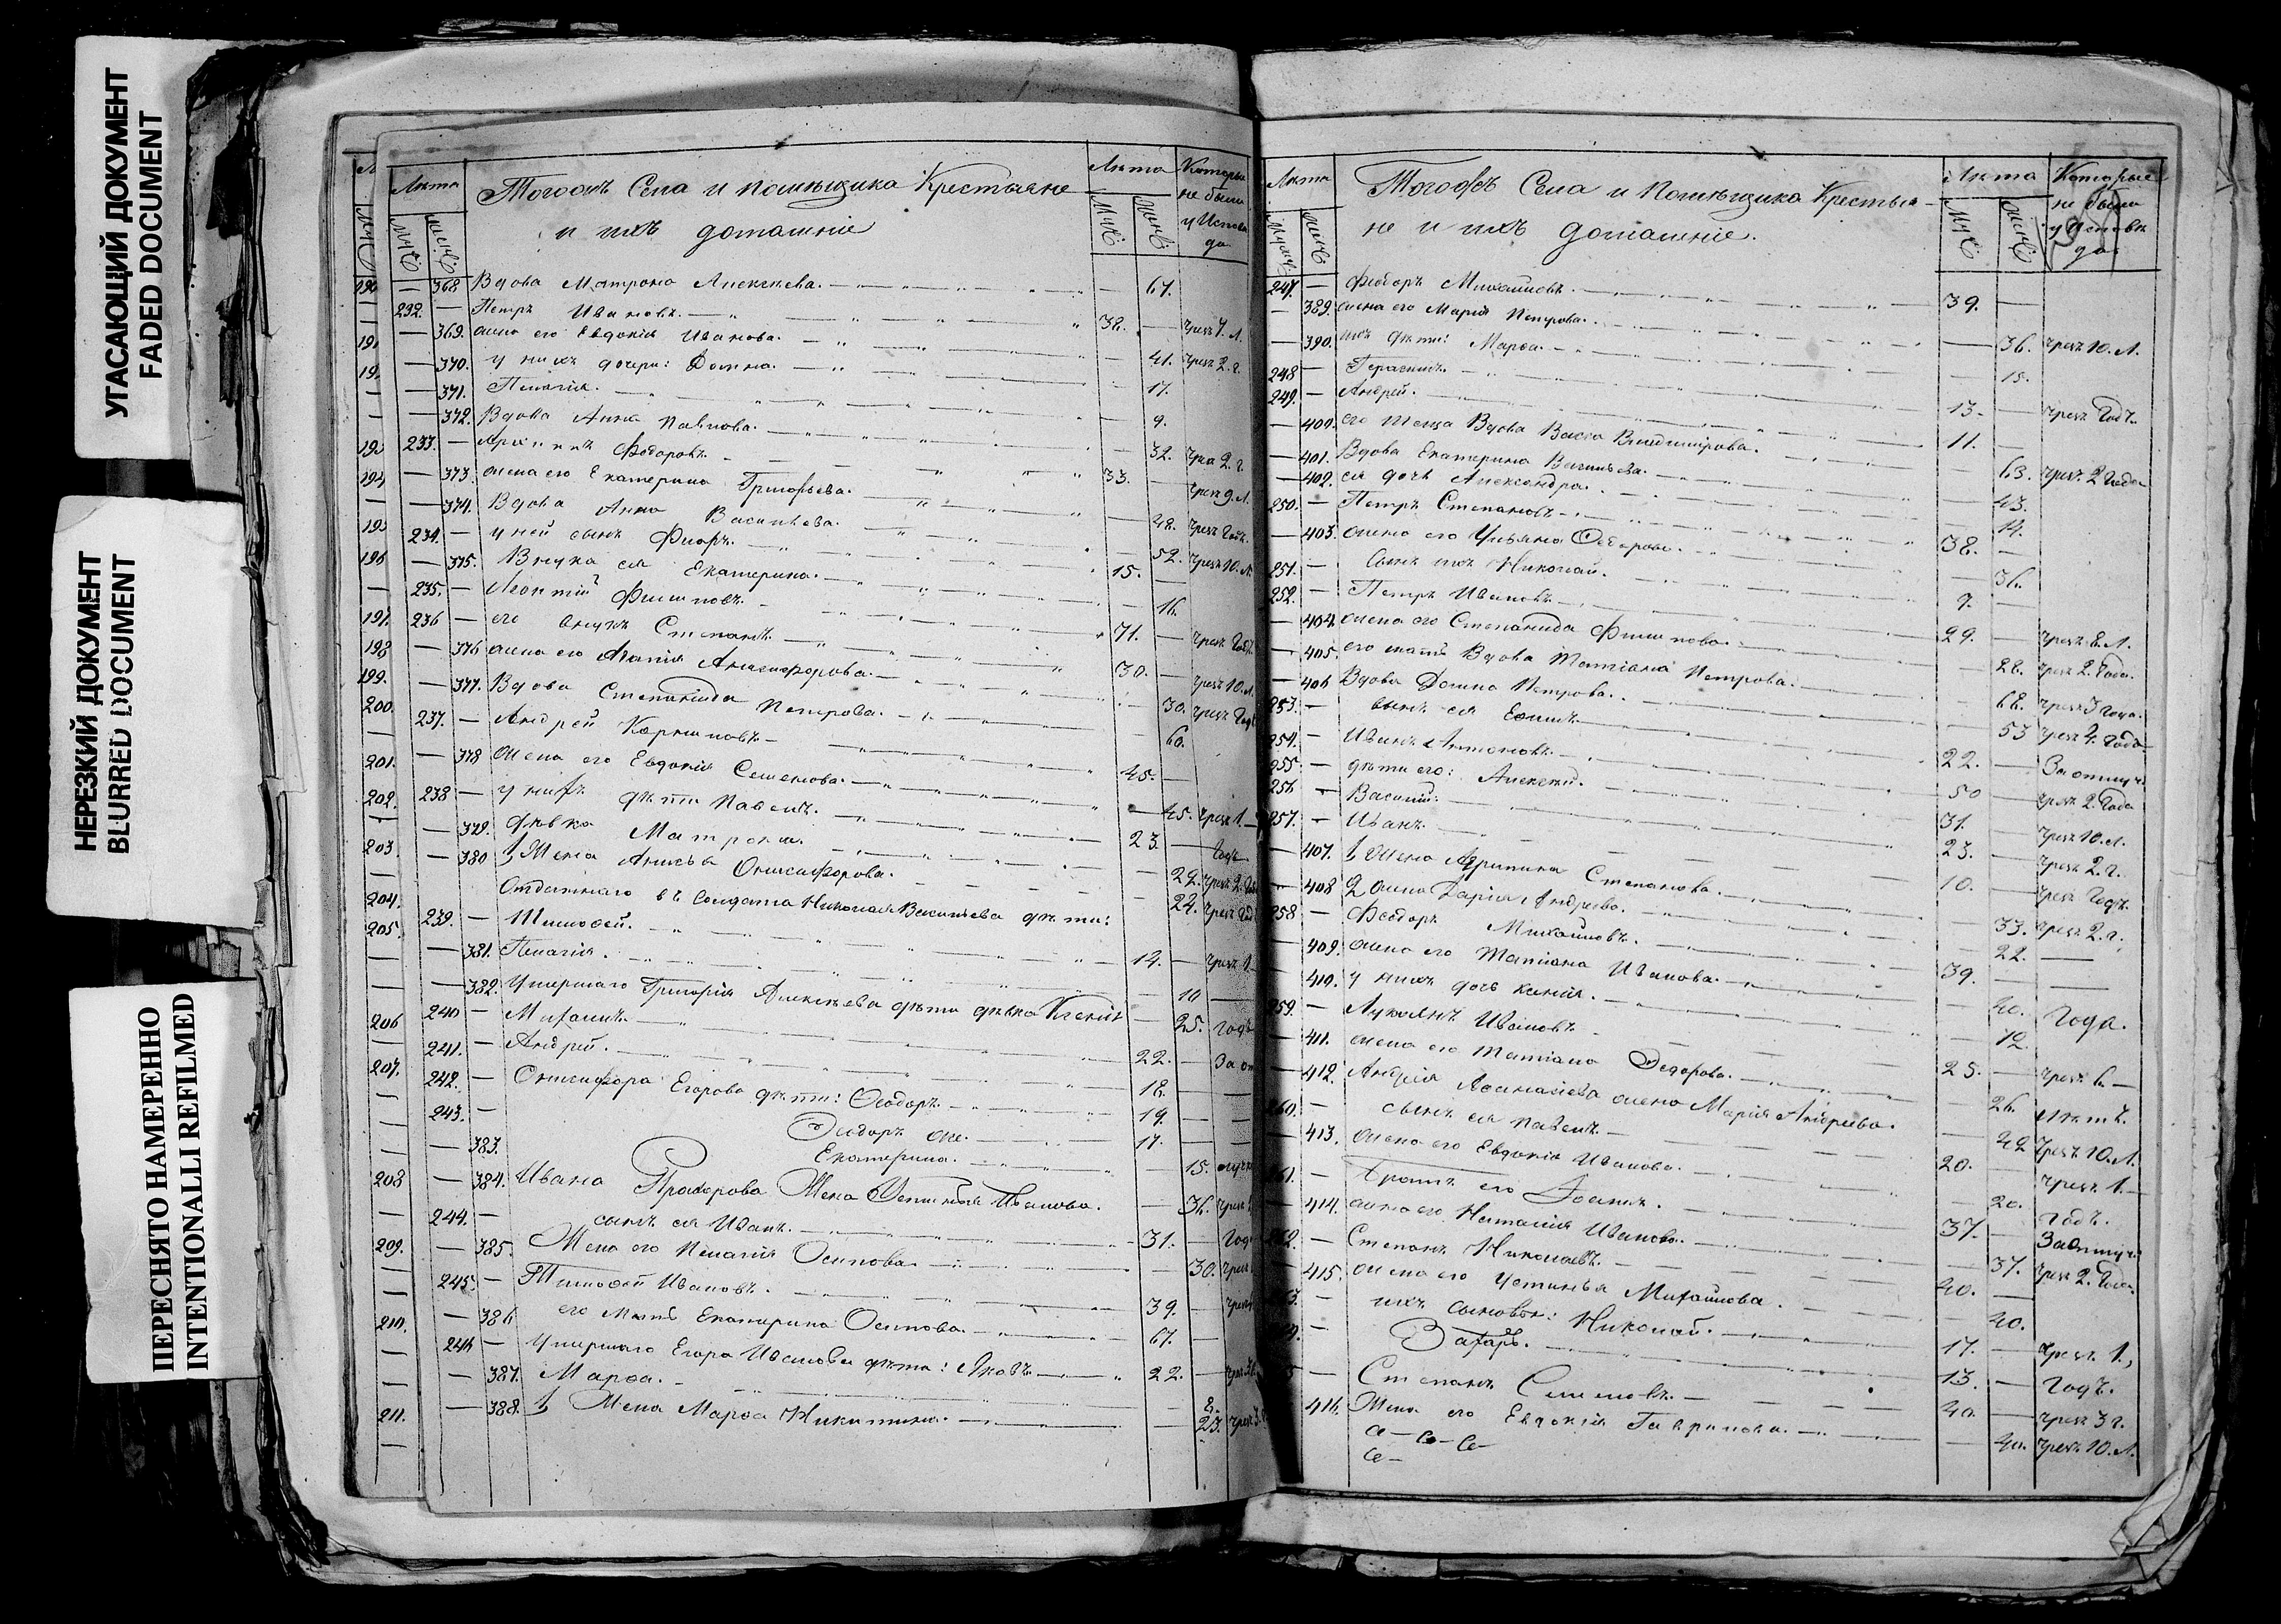 УГАСАЮЩИЙ ДОКУМЕНТ
FADED DOCUMENT
НЕРЕЗКИЙ ДОКУМЕНТ
BLURRED DOCUMENT
ПЕРЕСНЯТО НАМЕРЕННО
INTENTIONALLI REFILMED
Лѣта Тогожъ Села и помѣщика Крестьяне Лѣта Которые
и ихъ домашніе не были у Испове да
— 368 Вдова Матрона Алексѣева. — 67.
232. — Петръ Ивановъ. 38. — чрезъ 7. л.
— 369. жена его Евдокія Иванова. — 41. чрезъ 2. г.
— 370. у нихъ дочери: Домна. — 17.
— 371. Пелагія. — 9.
— 372. Вдова Анна Павлова. — 32. чрез 2. г.
233. — Ѳедоровъ. 33. — чрезъ 9. л.
— 373. жена его Екатерина Григорьева. — 28. чрезъ Годъ.
— 374. Вдова Анна Васильева. — 52. чрезъ 10. л.
234. — у ней сынъ 15. —
— 375. Внука ея Екатерина. — 16.
235. — Леонтій Филиповъ. 71. — чрезъ Годъ.
236 — его внукъ Степанъ. 30. — чрезъ 10. л.
— 376 жена его Агапія Анисифорова. — 30. чрезъ Годъ
— 377. Вдова Степанида Петрова. — 60.
237. — Андрей Корниловъ. 45. —
— 378 жена его Евдокія Семенова. — 45. чрезъ 1.
238 — у нихъ дѣти Павелъ. 23. — Годъ
— 379. дѣвка Матрона. — 22. чрезъ 2.
— 380 1, Жена Анисья Онисифорова. — 22. чрезъ Год
Отданнаго въ солдата Николая Васильева дѣти:
239. — Тимофей. 12. — чрезъ 1.
— 381. Пелагія. — 10 —
— 382. Умершаго Григорія Алексѣева дѣти дѣвка — 25. годъ
240 — Михаилъ. 22. — За от
241. — Андрей. 18. —
242. — Онисифора Егорова дѣти: Ѳеодоръ. 19. —
243. — Ѳеодоръ же. 17. —
— 383. Екатерина. — 15.
— 384. Ивана Прохорова Жена Иванова. — 36. чрезъ
244. — сынъ ея Иванъ. 31. — Год
— 385. Жена его Пелагія Осипова. — 30. чрезъ
245. — Тимофей Ивановъ. 39. — чрезъ
— 386 его мать Екатерина Осипова. 67. —
246 — Умершаго Егора Иванова дѣти: Яковъ 22. —
— 387. Марѳа. — 8.
— 388. 1, Жена Марѳа Никитина. — 23. чрезъ 3.
190
191
194
195
196
197.
198
199.
200
201.
202.
203.
204.
205.
206
207.
208
209.
210.
211.
Лѣта Тогожъ Села и помѣщика Крестья- Лѣта Которые
не и ихъ домашніе. не были у Исповѣ да.
247. — Ѳеодоръ Михайловъ. 39. —
— 389. жена его Марія Петрова. — 36. чрезъ 10. л.
— 390. ихъ дѣти: Марѳа. — 15.
248 — Герасимъ. 13. — чрезъ Годъ.
249. — Андрей. 11. —
— 400. его теща Вдова Васса Владимірова. — 63. чрезъ 2 Года
— 401. Вдова Екатерина Васильева. — 43.
— 402. ея дочь Александра. — 14.
250. — Петръ Степановъ. 38. —
— 403. жена его Ульяна Ѳедорова. — 36.
251. — сынъ ихъ Николай. 9. —
252. — Петръ Ивановъ. 29. — чрезъ 8. л.
— 404. жена его Степанида Филипова. — 28. чрезъ 2. Года.
— 405. его мать Вдова Татіана Петрова. — 68. чрезъ 3 Года.
— 406 Вдова Домна Петрова. — 53 чрезъ 4. Года
253. — сынъ ея Ефимъ 22. — За отлуч.
254. — Иванъ Антоновъ. 50 — чрезъ 2. Года
255. — дѣти его: Алексѣй. 31. — чрезъ 10. л.
256 — Василій. 23. — чрезъ 2. г.
257. — Иванъ. 10. — чрезъ Годъ.
— 407. 1, Жена Агрипина Степанова. — 33. чрезъ 2. г.
— 408 2 жена Дарія Андреева. — 22. —
258 — Ѳеодоръ Михайловъ. 39. —
— 409. жена его Татіана Иванова. — 40. Года.
— 410. у нихъ дочь Ксенія. — 12.
259. — Лукьянъ Ивановъ. 25. — чрезъ 6. —
— 411. жена его Татіана Ѳедорова. — 26. лѣтъ.
— 412. Андрея Аѳанасіева жена Марія Андреева. — 42 чрезъ 10. л.
260. — сынъ ея Павелъ. 20. — чрезъ 1. —
— 413. жена его Евдокія Иванова. — 20. годъ.
261. — братъ его 37. — За отлуч.
— 414. жена его Наталія Иванова. — 37. чрезъ 2. Года.
262. — Степанъ Николаевъ. 40. —
— 415. жена его Устинья Михайлова. — 40.
— ихъ сыновья: Николай. 17. — чрезъ 1.,
— Захаръ. 13. — годъ.
— Степанъ Семеновъ. 40. — чрезъ 3 г.
416. Жена его Евдокія Гаврилова. — 40. чрезъ 10. л.